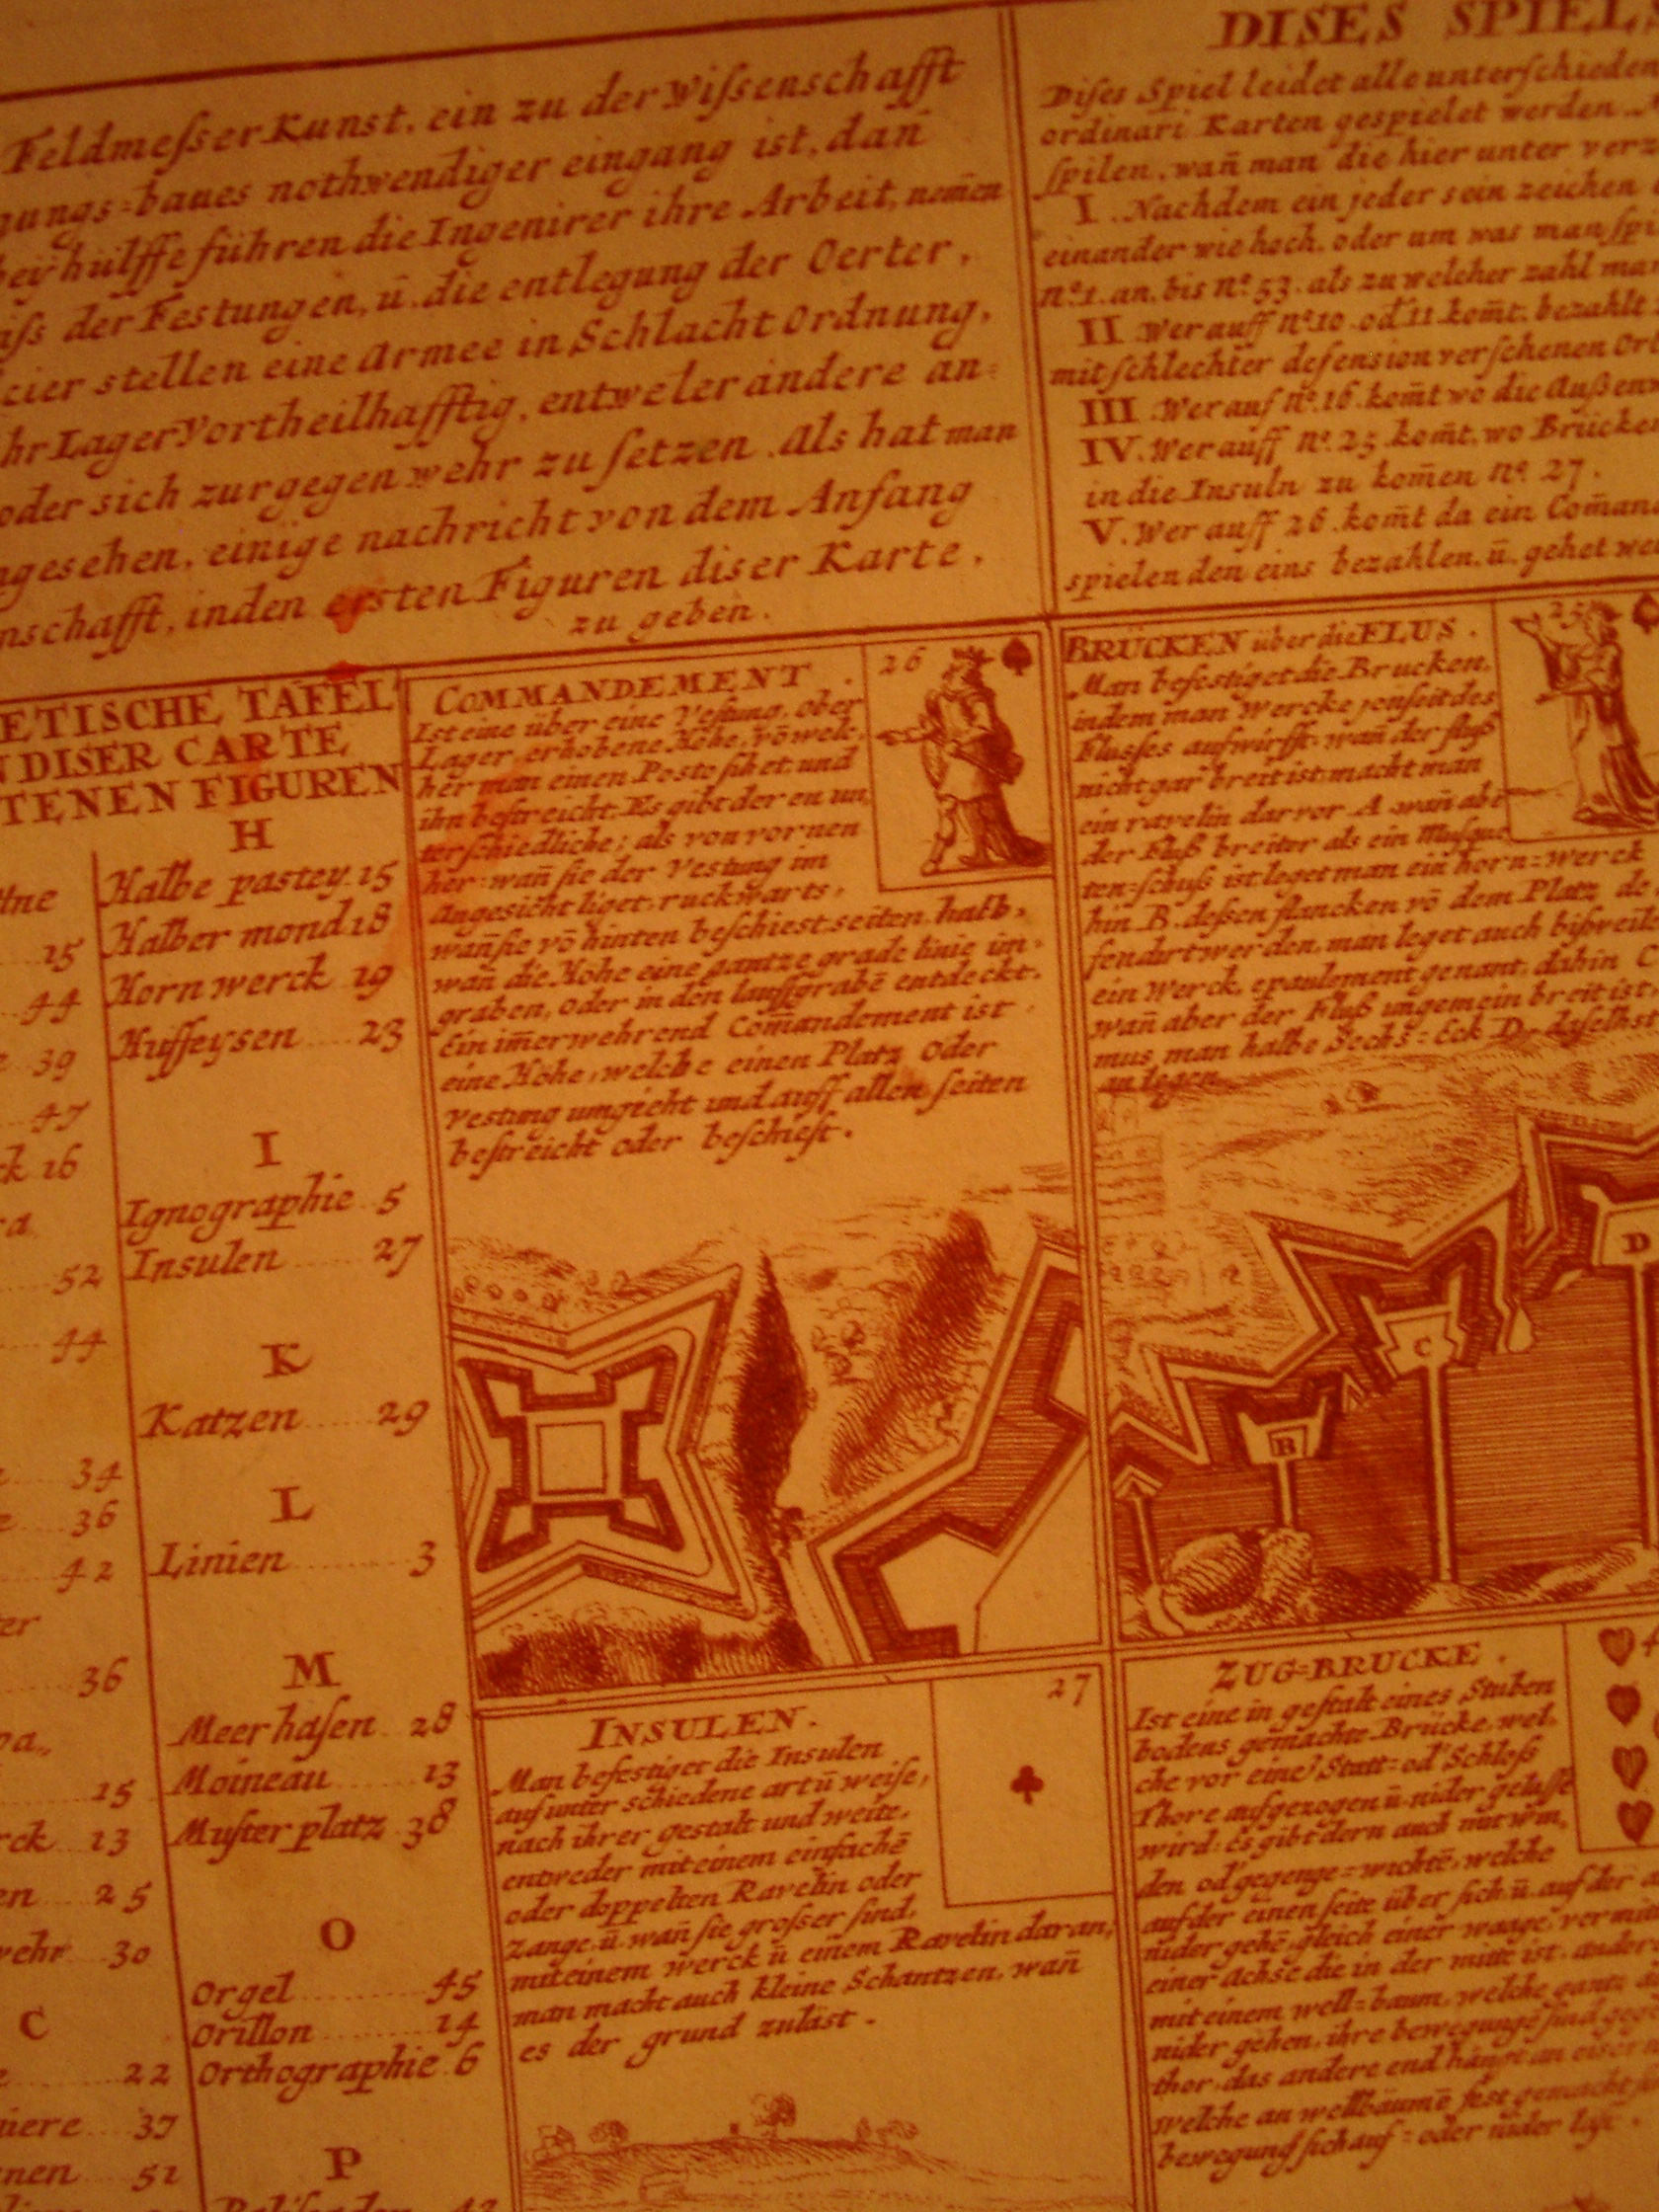 FeldmeſserKunst, ein zu der wiſsenschafft
gungs=baues nothwendiger eingang ist, dañ
beÿ hülffe führen die Ingenirer ihre Arbeit, nem̃en
aſs der Festungen, ū. die entlegung der Oerter,
cier stellen eine Armee in Schlacht Ordnung,
hr Lager Vortheilhafftig, entweler andere an=
oder sich zur gegenwehr zu ſetzen. Als hat man
ngesehen, einige nachricht von dem Anfang
nschafft, in den ersten Figuren diser Karte,
zu geben.
DISES SPIELS
Diſes Spiel leidet alle unterſchieden
ordinari Karten gespielet werden.
ſpilen, wañ man die hier unter verz
I. Nachdem ein jeder sein zeichen
einander wie hoch, oder um was man ſpi
nº.1. an, bis Nº. 53. als zu welcher zahl man
II Wer auff nº.10. od 11. kom̃t, bezahlt
mit ſchlechter defension verſehenen Ort
III. Wer auf Nº.16. kom̃t wo die Außenw
IV. Wer auff Nº. 25. kom̃t, wo Brücken
in die Insuln zu kom̃en Nº 27.
V. Wer auff 26. kom̃t da ein Com̃an
spielenden eins bezahlen, ū. gehet we
ETISCHE TAFEL
N DISER CARTE
TENEN FIGUREN
ttne
15
44
39
47
ck 16
ra
52
44
34
36
42
ter
36
pa,,
15
rck 13
en 25
wehr 30
C
22
niere 37
nen 51
H
Halbe pastey. 15
Halber mond 18
Hornwerck 19
Huffeysen 23
I
Ignographie 5
Insulen 27
K
Katzen 29
L
Linien 3
M
Meerhaſen 28
Moineau 13
Muſterplatz 38
O
Orgel 45
Orillon 14
Orthographie 6
P
26
COMMANDEMENT.
Ist eine über eine Veſtung, ober
Lager, erhobene Höhe, vō wel,
her man einen Posto ſihet, und
ihn beſtreicht. Es gibt deren un,
terſchiedliche; als von vornen
her: wañ ſie der Vestung im
Angesicht liget, ruckwarts,
wañ ſie vō hinten beſchiest, seiten, halb,
wañ die Höhe eine gantze grade linie im
graben, oder in den lauffgrabē entdeckt.
Ein im̃erwehrend Com̃andement ist
eine Höhe, welche einen Platz oder
Vestung umgieht und auff allen ſeiten
beſtreicht oder beſchieſt.
25
BRÜCKEN über die FLUS.
Man befestiget die Brucken,
indem man Wercke jenſeit des
Fluſſes aufwirfft. wañ der fluß
nicht gar breit ist, macht man
ein ravelin darvor A. wañ abe
der Fluß breiter als ein Muſque
ten=ſchuß ist, leget man ein horn=werck
hin B. deßen flancken vō dem Platz de,
fendirt werden, man leget auch bißweil
ein Werck, epaulement genant, dahin C
wañ aber der Fluß ungemein breit ist,
mus man halbe Sechs=Eck D. daſelbst
an legen.
B
C
D
27
INSULEN.
Man befestiget die Insulen
auf unterschiedene art ū weiſe,
nach ihrer gestalt und weite,
entweder mit einem einfachē
oder doppelten Ravelin oder
Zange, ū. wañ ſie groſser ſind,
mit einem werck ū einem Ravelin daran,
man macht auch kleine Schantzen, wañ
es der grund zuläst.
ZUG=BRUCKE.
Ist eine in geſtalt eines Stuben
bodens gemachte Brücke, wel,
che vor eine Statt= od Schloſs
Thore aufgezogen ū. nider gelaſſē
wird: Es gibt dern auch mit win,
den od' gegenge=wichtē, welche
auf der einen ſeite über ſich ū. auf der a
nider gehē, gleich einer waage, vermit
einer Achse die in der mitte ist, ander
mit einem well=baum, welche gantz
nider gehen, ihre bewegungē ſind geg
thor, das andere end hängt an eiser
welche an wellbäumē feſt gemacht
bewegung ſich auf= oder nider läſt.